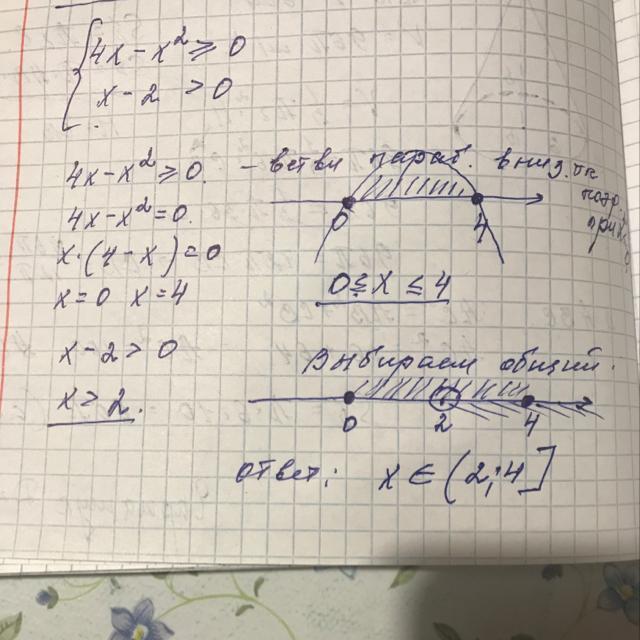 4x - x² ≥ 0
x - 2 > 0
4x - x² ≥ 0. - ветви параб. вниз, т.к
4x - x² = 0.
при x
0 4
x · (4 - x) = 0
x = 0 x = 4
0 ≤ x ≤ 4
x - 2 > 0
Выбираем общий.
x > 2.
0 2 4
ответ: x ∈ (2; 4]